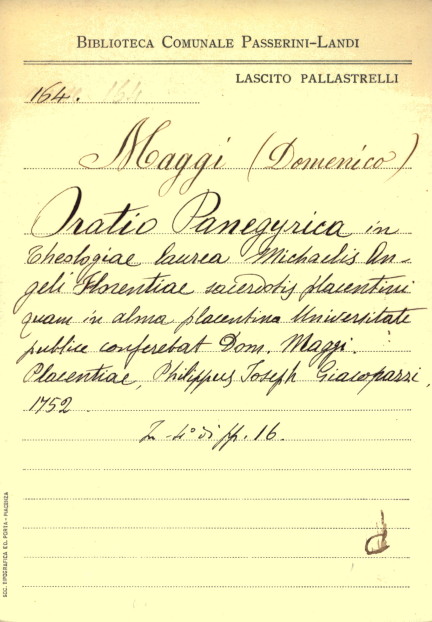 BIBLIOTECA COMUNALE PASSERINI-LANDI
LASCITO PALLASTRELLI
164. 164
Maggi (Domenico)
Oratio Panegyrica in
Theologiae laurea Michaelis An-
geli Florentiae sacerdotis placentini
quam in alma placentina Universitate
publice conferebat Dom. Maggi.
Placentiae, Philippus Joseph Giacopazzi,
1752.
In 4° di pp. 16.
SOC. TIPOGRAFICA ED. PORTA - PIACENZA